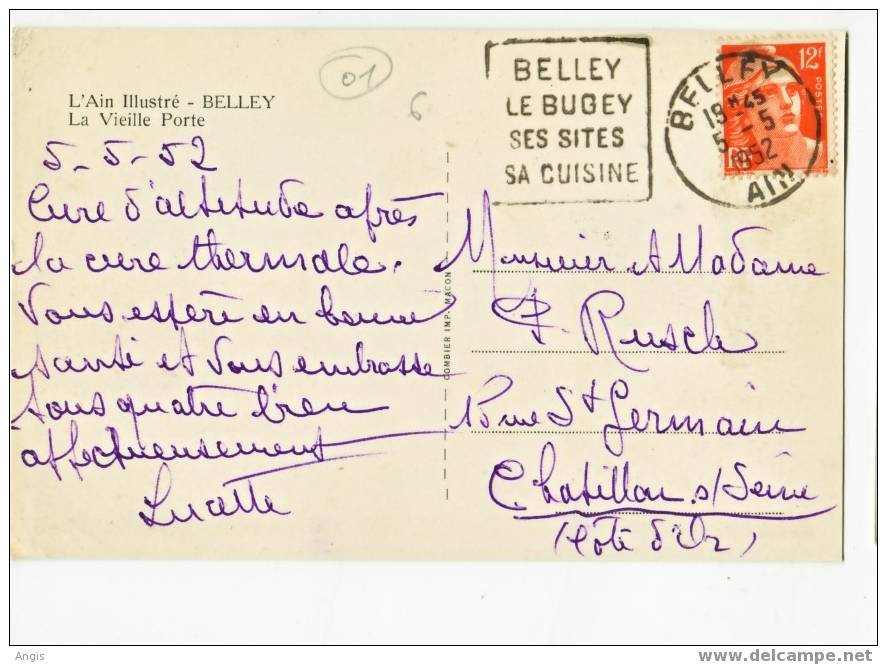 L'Ain Illustré - BELLEY
La Vieille Porte
01
6
BELLEY
LE BUGEY
SES SITES
SA CUISINE
BELLEY
18 45
5 - 5
1952
AIN
12F
POSTES
5-5-52
Cure d'altitude après
la cure thermale.
Vous espère en bonne
santé et vous embrasse
tous quatre bien
affectueusement
Lucette
COMBIER IMP. MACON
Monsieur & Madame
P. Rusch
rue St Germain
Chatillon s/Seine
(Côte d'Or)
Angis
www.delcampe.net